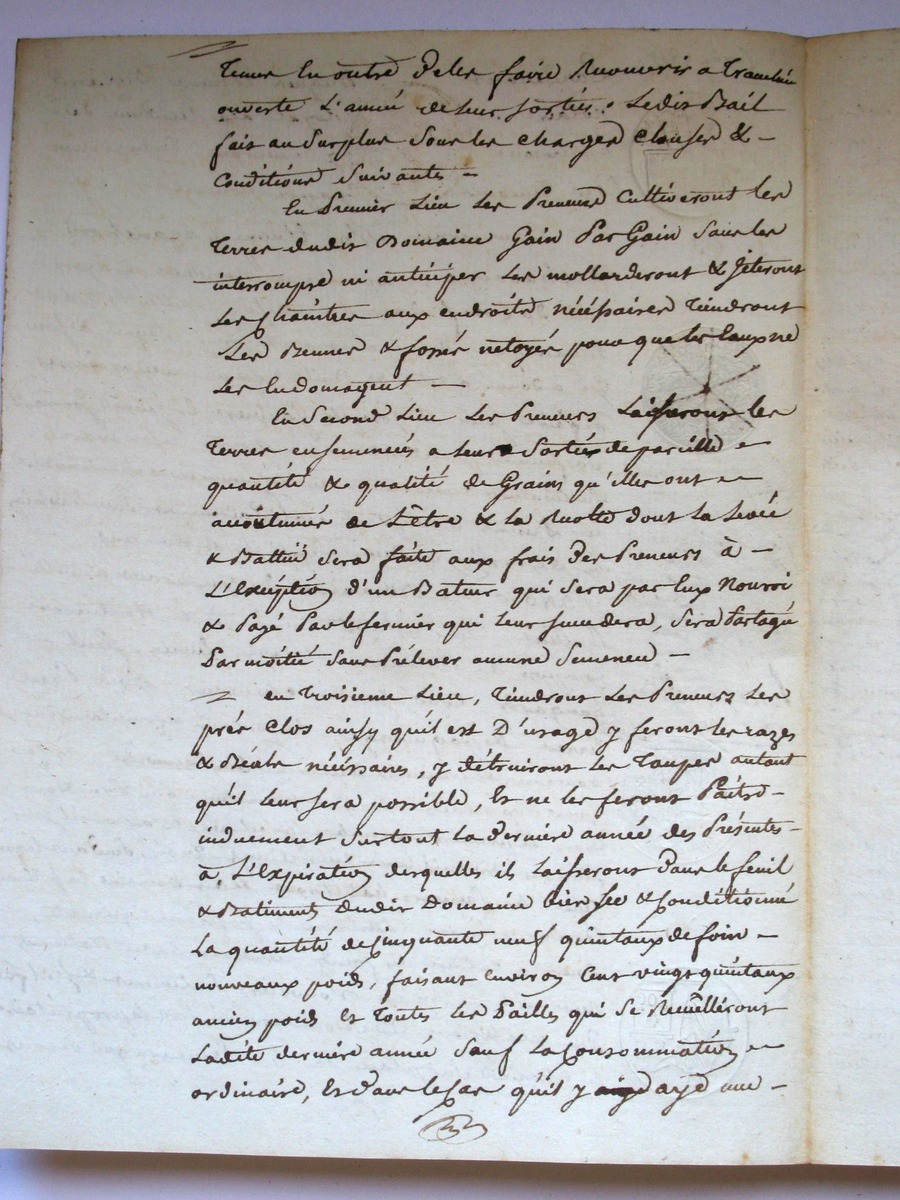 tenus En outre de les faire recouvrir a Tranchée
ouverte L'année de leur sortie. Ledit Bail
fait au surplus sous les charges clauses &
conditions suivantes
En Premier Lieu Les Preneurs cultiveront les
Terres dudit Domaine Gain Par Gain sans les
interrompre ni anticiper les mollarderont & Jeteront
Les chaintres aux endroits nécéssaires Tiendront
Les & fossés netoyés pour que les Eaux ne
Les Endomagent
En Second Lieu Les Preneurs Laisseront les
Terres ensemencés a leur Sortie de pareille
quantité & qualité de Grains qu'elles ont
acoutumés de L'être & la Recolte dont la levée
& Battue sera faite aux frais des Preneurs à
L'Exéption d'un Bateur qui sera par Eux Nourri
& Payé Par le fermier qui leur succedera, sera Partagé
Par moitié sans Prélever aucune Semence
en Troisieme Lieu, Tiendront Les Preneurs Les
prés Clos ainsy qu'il est D'usage y feront les razes
& Béals nécéssaires, y détruiront les Taupes autant
qu'il leur sera possible, Et ne les feront Paitre
induement surtout la derniere année des Présentes
à L'Expiration desquelles ils Laisseront Dans le fenil
& Batiments dudit Domaine bien sec & Conditionné
La quantité de Cinquante neuf quintaux de foin
nouveaux poids, faisant environ Cent vingt quintaux
ancien poids Et Toutes Les Pailles qui se Recuëlleront
Ladite derniere année sauf la Consommation
ordinaire, Et Dans le Cas qu'il y aye une